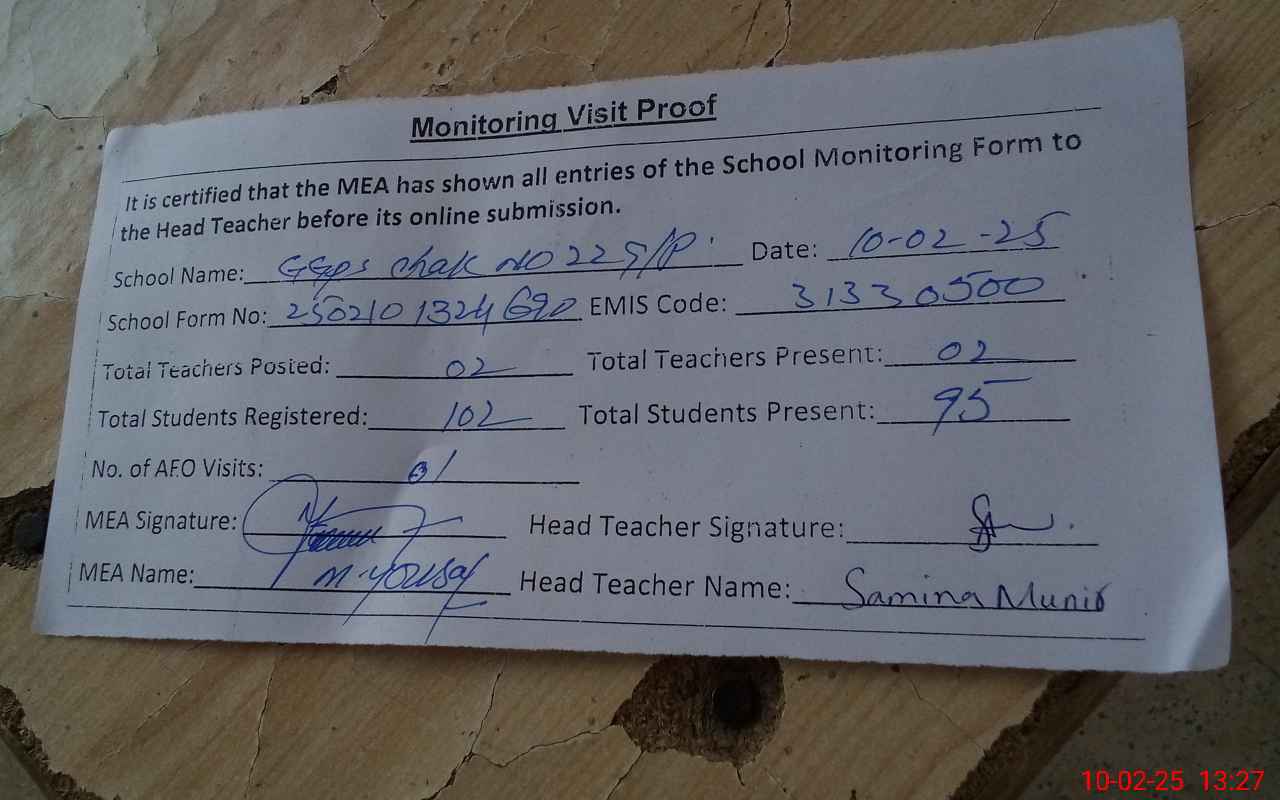 Monitoring Visit Proof
It is certified that the MEA has shown all entries of the School Monitoring Form to
the Head Teacher before its online submission.
School Name: GGPS Chak No 22 G/P. Date: 10-02-25
School Form No: 2502101324690 EMIS Code: 31330500
Total Teachers Posted: 02 Total Teachers Present: 02
Total Students Registered: 102 Total Students Present: 95
No. of AEO Visits: 01
MEA Signature: Head Teacher Signature:
MEA Name: M. Yousaf Head Teacher Name: Samina Munir
10-02-25 13:27